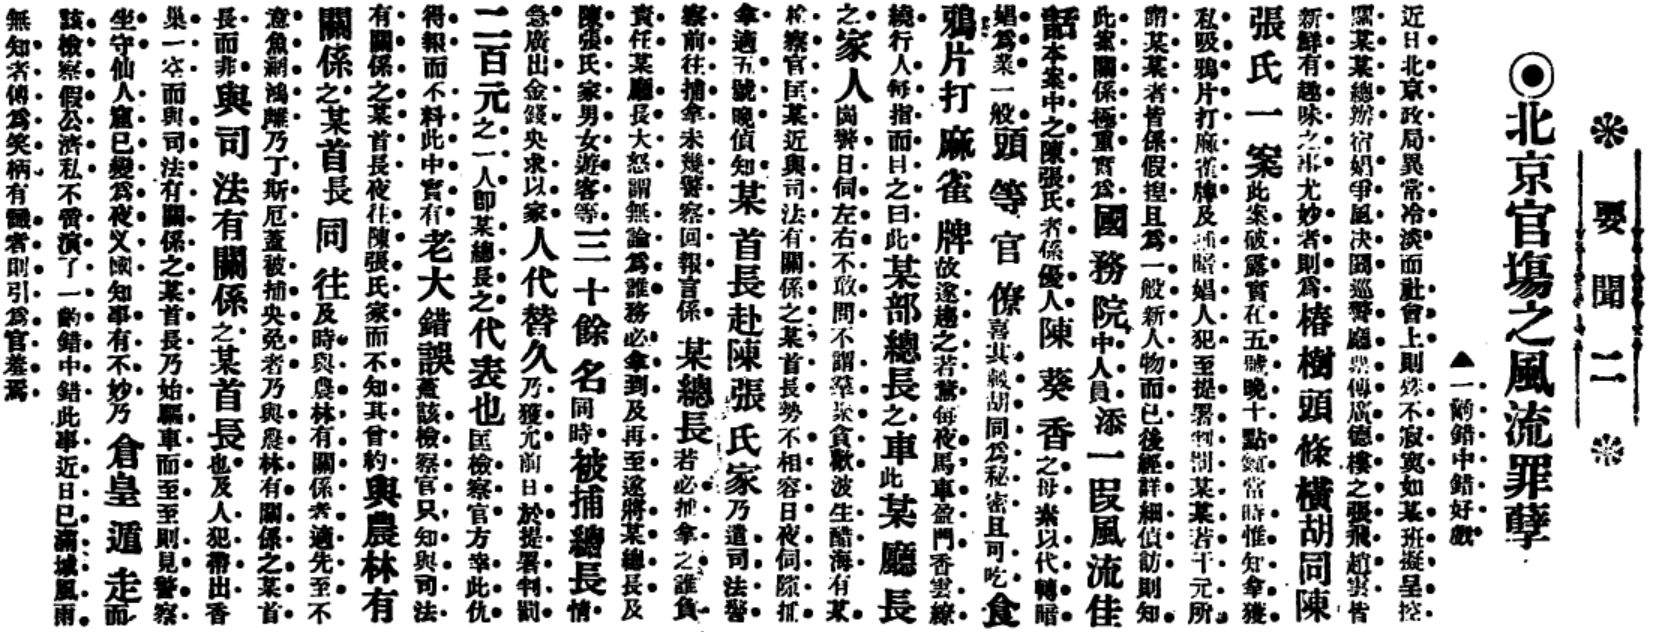 要聞二
◉北京官場之風流罪孽
▲一齣錯中錯好戲
近日北京政局異常冷淡而社會上則殊不寂寞如某班擬呈控
某某總辦宿娼爭風決鬭巡警廳喧傳廣德樓之張飛趙雲皆
新鮮有趣味之事尤妙者則爲椿樹頭條橫胡同陳
張氏一案此案破露實在五號晚十點鐘當時惟知拿獲
私吸鴉片打麻雀牌及暗娼人犯至提署判罰某某若干元所
謂某某者皆係假揑且爲一般新人物而已後經詳細偵訪則知
此案關係極重實爲國務院中人員添一段風流佳
話本案中之陳張氏者係優人陳葵香之母素以代轉暗
娼爲業一般頭等官僚喜其胡同爲秘密且可吃食
鴉片打麻雀牌故遂趨之若鶩每夜馬車盈門香雲繚
繞行人每指而目之曰此某部總長之車此某廳長
之家人崗警日伺左右不敢問不謂羣衆貪歡波生醋海有某
檢察官匡某近與司法有關係之某首長勢不相容日夜伺隙抓
拿適五號晚偵知某首長赴陳張氏家乃遣司法警
察前往捕拿未幾警察回報官係某總長若必捕拿之誰負
責任某廳長大怒謂無論爲誰務必拿到及再至遂將某總長及
陳張氏家男女遊客等三十餘名同時被捕總長情
急廣出金錢央求以家人代替久乃獲允前日於提署判罰
二百元之一人卽某總長之代表也匡檢察官方幸此仇
得報而不料此中實有老大錯誤蓋該檢察官只知與司法
有關係之某首長夜往陳張氏家而不知其曾約與農林有
關係之某首長同往及時與農林有關係者適先至不
意魚網鴻離乃丁斯厄蓋被捕央免者乃與農林有關係之某首
長而非與司法有關係之某首長也及人犯帶出香
巢一空而與司法有關係之某首長乃始驅車而至至則見警察
坐守仙人窟已變爲夜乂國知事有不妙乃倉皇遁走而
該檢察假公濟私不啻演了一齣錯中錯此事近日已滿城風雨
無知者傳爲笑柄有識者則引爲官羞焉